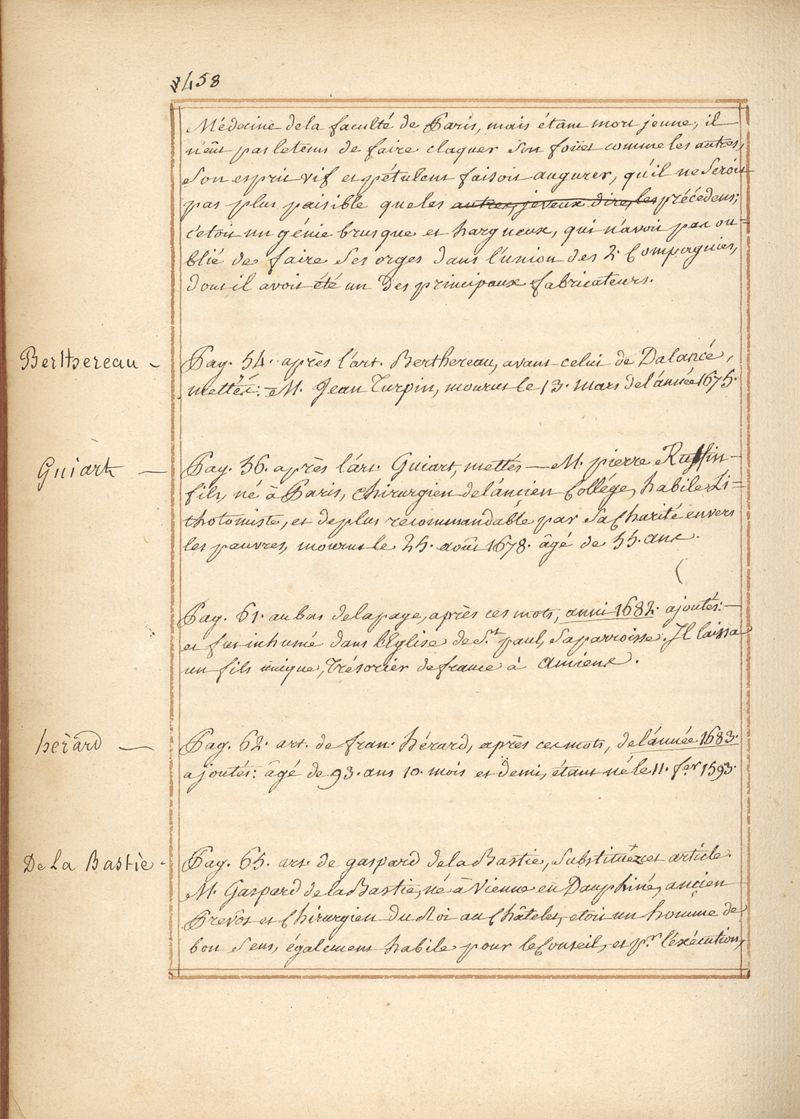 458
Médecine de la faculté de Paris, mais étant mort jeune, il
n'eût pas le tems de faire claquer son foüet comme les autres,
son esprit vif et pétulent faisoit augurer, qu'il ne seroit
pas plus paisible que les autres, joyeux dire, les précédens;
c'etoit un génie brusque et hargneux, qui n'avoit pas ou=
blié de faire ses orges dans l'union des 2. Compagnies,
dont il avoit été un des principaux fabricateurs.
Berthereau ~ Pag. 54. après l'art. Berthereau, avant celui de Dalancé,
mettés: M. Jean Turpin, mourut le 13. mars de l'année 1675.
Guiart — Pag. 56. après l'art. Guiart, mettés — M. pierre Ruffin
fils, né à Paris, Chirurgien de l'ancien Collége, habile Li=
thotomiste, et de plus recommandable par sa Charité envers
les pauvres, mourut le 25. août 1678. âgé de 55. ans.
Pag. 61. au bas de la page, après ces mots, anni 1682. ajoutés: —
et fut inhumé dans l'Eglise de St. paul, sa parroisse. Il laissa
un fils unique, trésorier de france à Amiens.
hérard — Pag. 62. art. de fran. hérard, après ces mots, de l'année 1683.
ajoutés: âgé de 93. ans 10. mois et demi, étant né le 11. fer. 1593.
De la Bastie - Pag. 65. art. de gaspard de la Bastie, substituéz cet article.
M. Gaspard de la Bastie, né à Vienne en Dauphiné, ancien
Prevôt et Chirurgien du Roi au Châtelet, etoit un homme de
bon sens, également habile pour le Conseil, et pr. l'exécution,